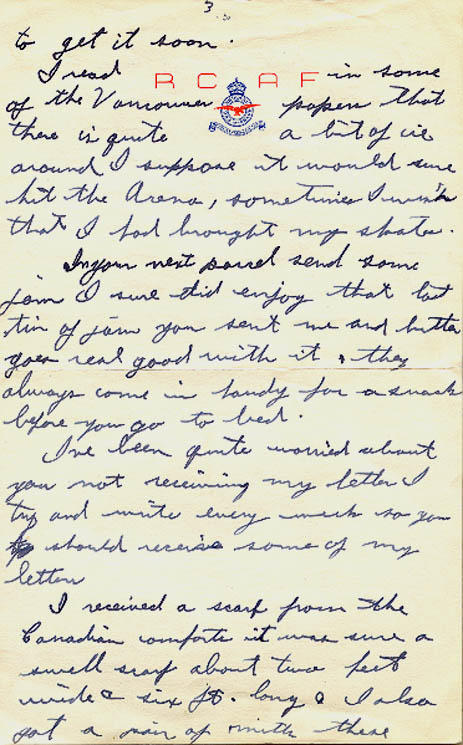 3
to get it soon.
I read RCAF in some
of the Vancouver papers that
there is quite a bit of ice
around I suppose it would sure
hit the Arena, sometimes I wish
that I had brought my skates.
In your next parcel send some
jam I sure did enjoy that last
tin of jam you sent me and butter
goes real good with it & they
always come in handy for a snack
before you go to bed.
I've been quite worried about
you not receiving my letter I
try and write every week so you
should receive some of my
letters
I received a scarf from the
Canadian comforts it was sure a
swell scarf about two feet
wide & six ft. long & I also
got a pair of mitts these